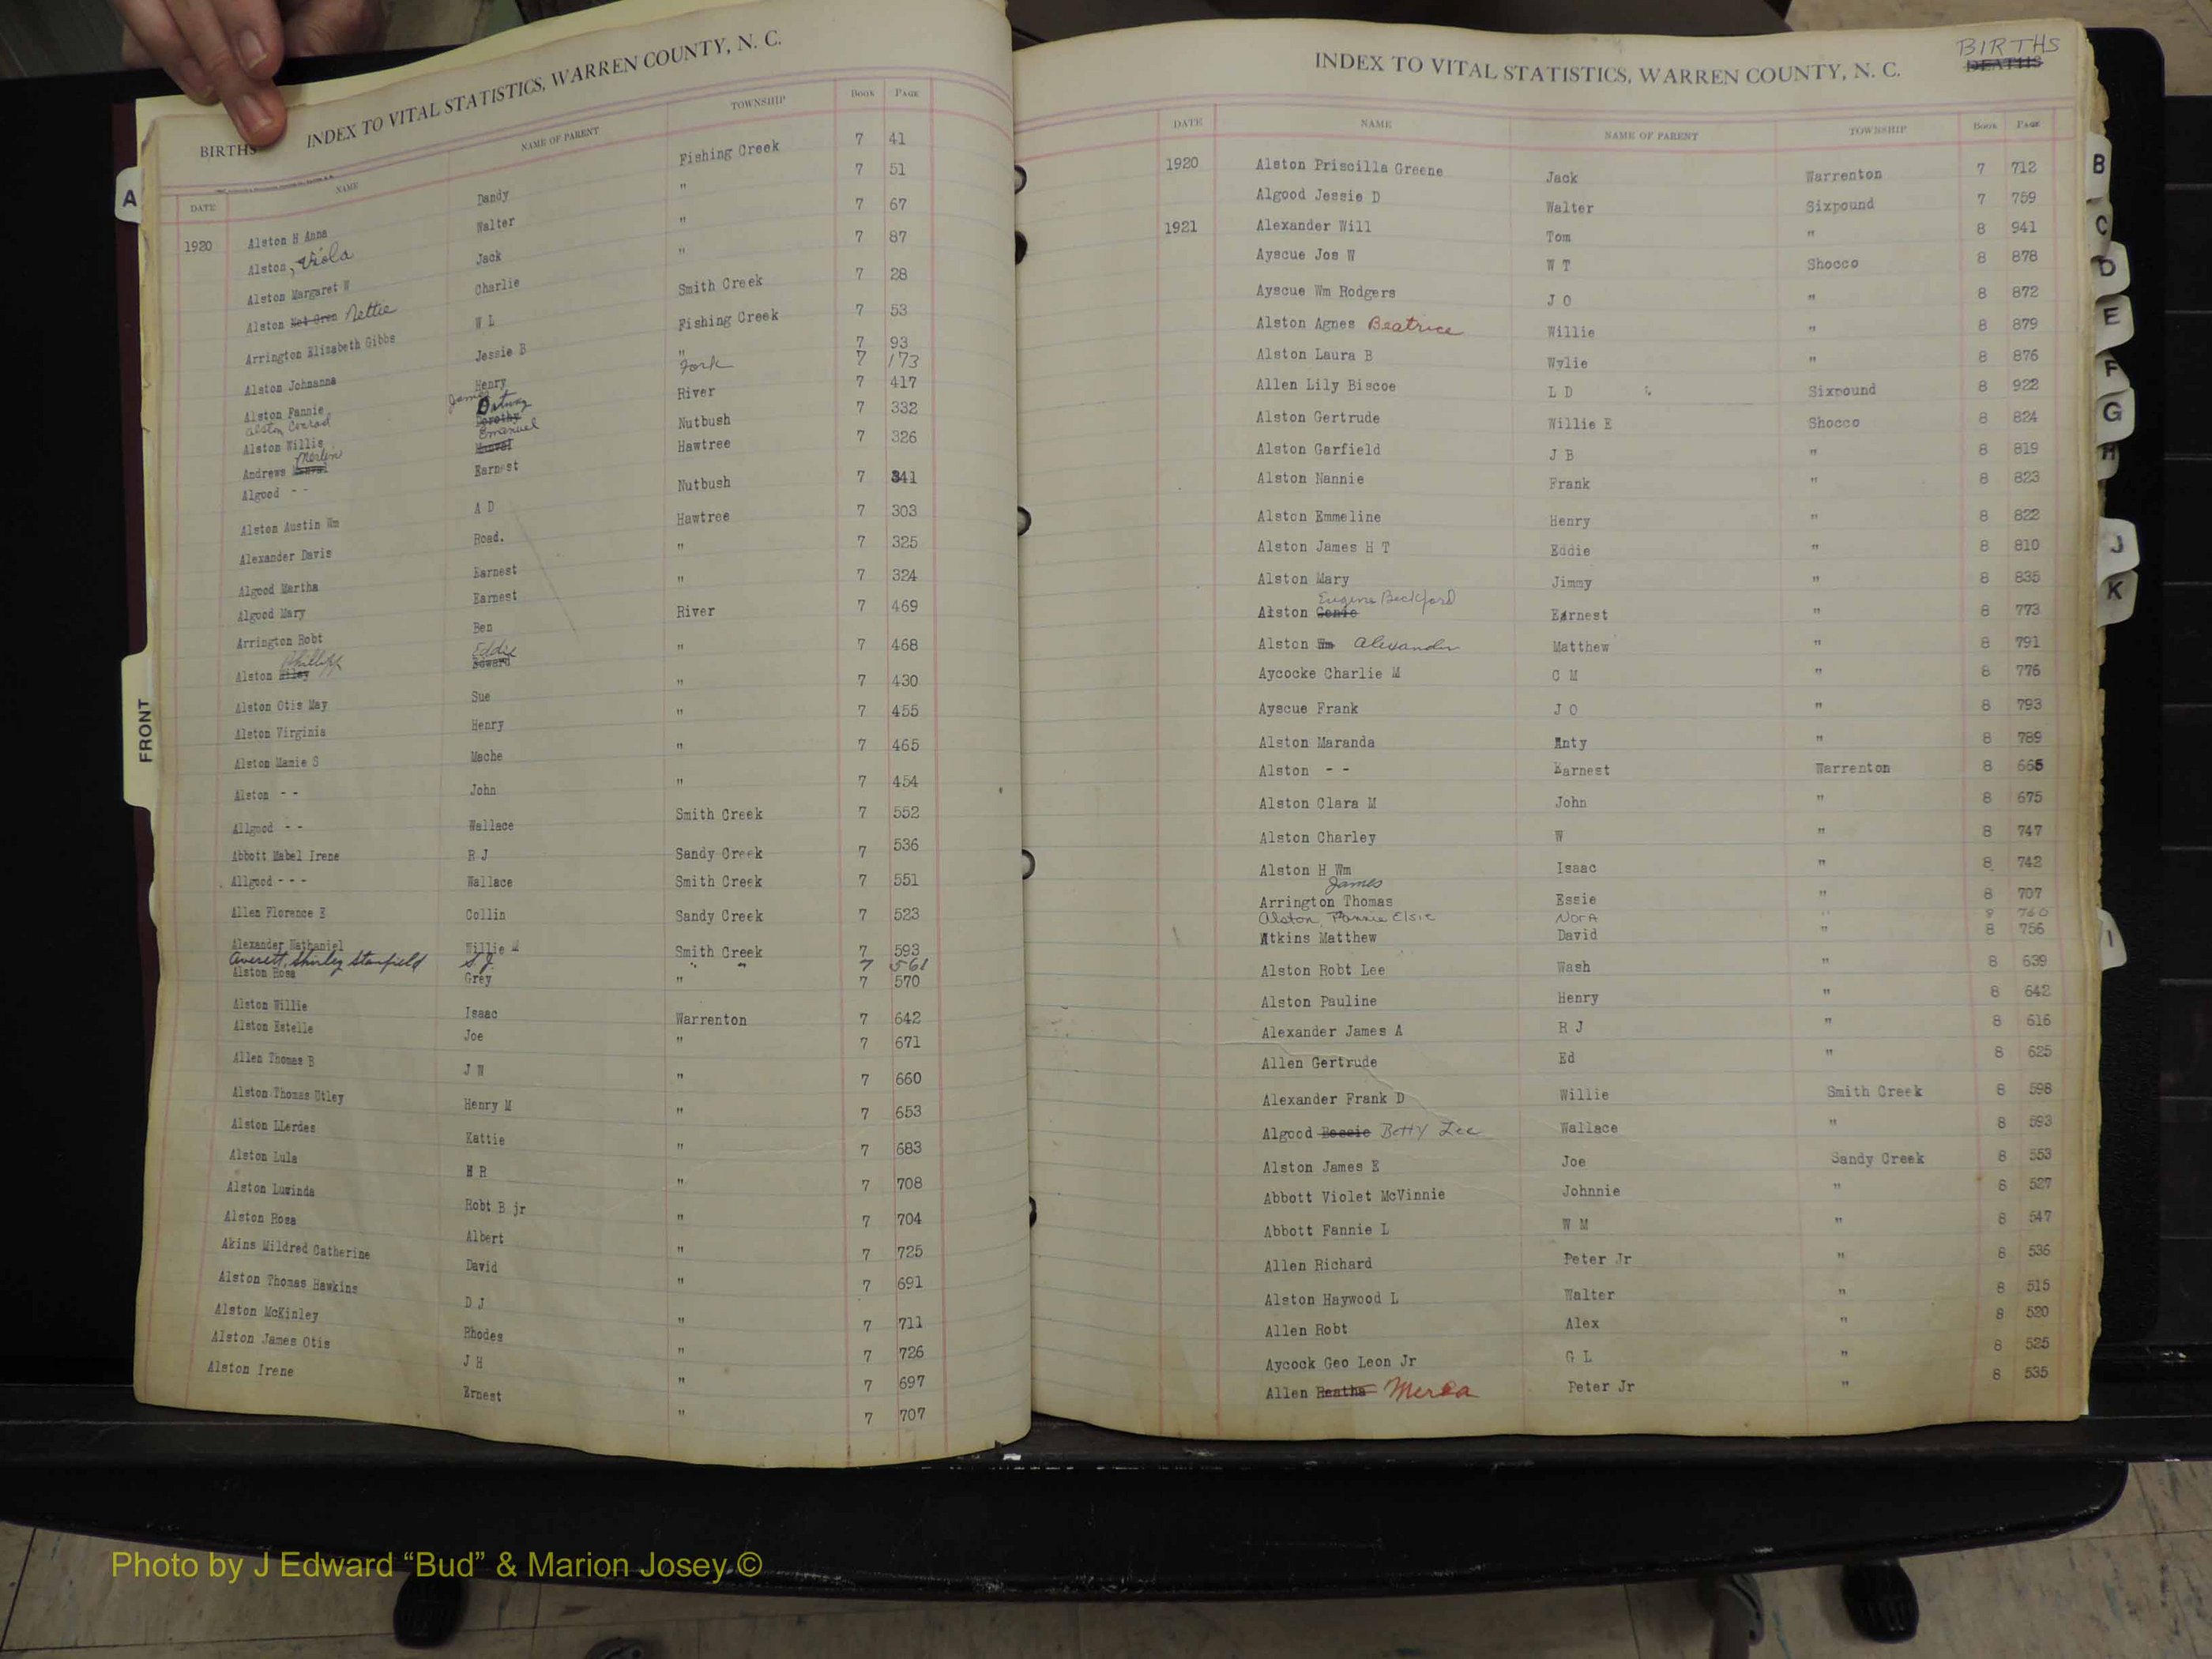 BIRTHS INDEX TO VITAL STATISTICS, WARREN COUNTY, N. C.
DATE NAME NAME OF PARENT TOWNSHIP BOOK PAGE
1920 Alston H Anna Dandy Fishing Creek 7 41
Alston, Viola Walter " 7 51
Alston Margaret W Jack " 7 67
Alston Not Gven Nettie Charlie " 7 87
Arrington Elizabeth Gibbs W L Smith Creek 7 28
Alston Johnanna Jessie B Fishing Creek 7 53
Alston Fannie Henry " 7 93
Alston Conrad James Fork 7 173
Alston Willis River 7 417
Andrews Merlin Emanuel Nutbush 7 332
Algood - - Earnest Hawtree 7 326
Alston Austin Wm A D Nutbush 7 341
Alexander Davis Road. Hawtree 7 303
Algood Martha Earnest " 7 325
Algood Mary Earnest " 7 324
Arrington Robt Ben River 7 469
Alston Riley Phillip Edward Eddie " 7 468
Alston Otis May Sue " 7 430
Alston Virginia Henry " 7 455
Alston Mamie S Mache " 7 465
Alston - - John " 7 454
Allgood - - Wallace Smith Creek 7 552
Abbott Mabel Irene R J Sandy Creek 7 536
Allgood - - - Wallace Smith Creek 7 551
Allen Florence E Collin Sandy Creek 7 523
Alexander Nathaniel Willie M Smith Creek 7 593
Averett, Shirley Stanfield S J " " 7 561
Alston Rosa Grey " 7 570
Alston Willie Isaac Warrenton 7 642
Alston Estelle Joe " 7 671
Allen Thomas B J W " 7 660
Alston Thomas Utley Henry M " 7 653
Alston LLerdes Kattie " 7 683
Alston Lula H R " 7 708
Alston Luwinda Robt B jr " 7 704
Alston Rosa Albert " 7 725
Akins Mildred Catherine David " 7 691
Alston Thomas Hawkins D J " 7 711
Alston McKinley Rhodes " 7 726
Alston James Otis J H " 7 697
Alston Irene Ernest " 7 707
BIRTHS
DEATHS
INDEX TO VITAL STATISTICS, WARREN COUNTY, N. C.
DATE NAME NAME OF PARENT TOWNSHIP BOOK PAGE
1920 Alston Priscilla Greene Jack Warrenton 7 712
Algood Jessie D Walter Sixpound 7 759
1921 Alexander Will Tom " 8 941
Ayscue Jos W W T Shocco 8 878
Ayscue Wm Rodgers J O " 8 872
Alston Agnes Beatrice Willie " 8 879
Alston Laura B Wylie " 8 876
Allen Lily Biscoe L D Sixpound 8 922
Alston Gertrude Willie E Shocco 8 824
Alston Garfield J B " 8 819
Alston Nannie Frank " 8 823
Alston Emmeline Henry " 8 822
Alston James H T Eddie " 8 810
Alston Mary Jimmy " 8 835
Eugene Beckford
Alston Genie Earnest " 8 773
Alston Wm Alexander Matthew " 8 791
Aycocke Charlie M C M " 8 776
Ayscue Frank J O " 8 793
Alston Maranda Anty " 8 789
Alston - - Earnest Warrenton 8 665
Alston Clara M John " 8 675
Alston Charley W " 8 747
Alston H Wm Isaac " 8 742
James
Arrington Thomas Essie " 8 707
Alston, Fannie Elsie Nora "
Atkins Matthew David " 8 756
Alston Robt Lee Wash " 8 639
Alston Pauline Henry " 8 642
Alexander James A R J " 8 616
Allen Gertrude Ed " 8 625
Alexander Frank D Willie Smith Creek 8 598
Algood Bessie Betty Lee Wallace " 8 593
Alston James E Joe Sandy Creek 8 553
Abbott Violet McVinnie Johnnie " 8 527
Abbott Fannie L W M " 8 547
Allen Richard Peter Jr " 8 536
Alston Haywood L Walter " 8 515
Allen Robt Alex " 8 520
Aycock Geo Leon Jr G L " 8 525
Allen Heatha Merca Peter Jr " 8 535
A
FRONT
B
C
D
E
F
G
H
J
K
I
Photo by J Edward “Bud” & Marion Josey ©